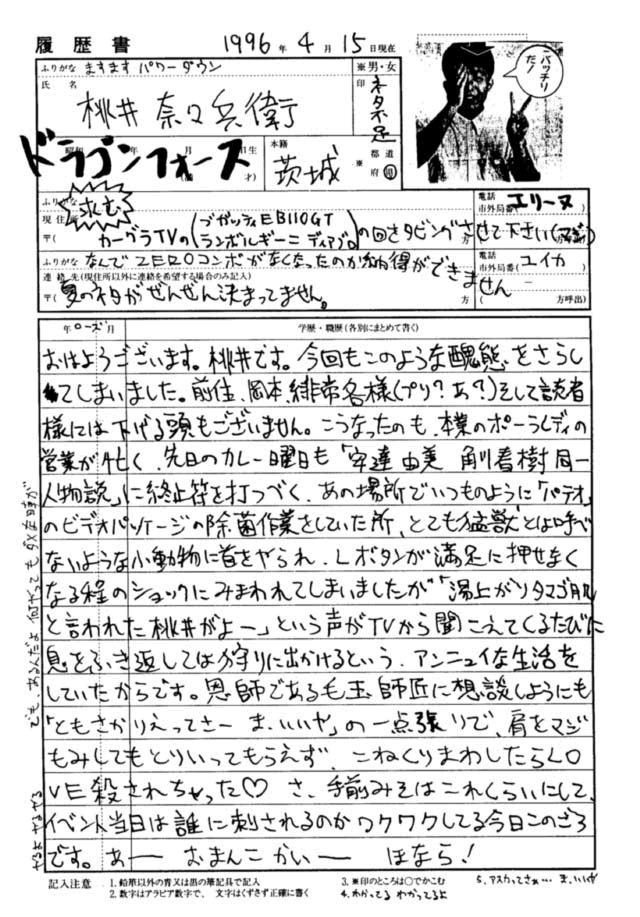 履歴書 1996年4月15日現在
ふりがな ますます パワーダウン ※男・女
氏名 桃井 奈々兵衛 印 ネタ不足
バッチリだ!
ドラゴンフォース
年 月 日生
才)
本籍 茨城 ※ 都道府県
ふりがな 電話 エリーヌ
求む
市外局番( )
現住所 〒( カーグラTVの(ブガッティEB110GT ランボルギーニ ディアブロ)の回をダビングさせて下さい(マジ)
ふりがな なんでZEROコンボがなくなったのか納得ができません 電話 ユイカ
市外局番( )
連絡先(現住所以外に連絡を希望する場合のみ記入)
〒( 夏のネタがぜんぜん決まってません。 方 ( 方呼出)
年 ローズ 月 学歴・職歴(各別にまとめて書く)
おはようございます。桃井です。今回もこのような醜態をさらし
てしまいました。前住、岡本、緋常各様(プリ?あ?)そして読者
様には下げる頭もございません。こうなったのも、本業のポーラレディの
営業が忙しく、先日のカレー曜日も「安達由美 角川春樹同一
人物説」に終止符を打つべく、あの場所でいつものように「パテオ」
のビデオパッケージの除菌作業をしていた所、とても猛獣とは呼べ
ないような小動物に首をやられ、Lボタンが満足に押せなく
なる程のショックにみまわれてしまいましたが「湯上がりタマゴ肌
と言われた桃井がよー」という声がTVから聞こえてくるたびに
息をふき返しては狩りに出かけるという、アンニュイな生活を
していたからです。恩師である毛玉師匠に想談しようにも
「ともさかりえってさー ま、いいや」の一点張りで、肩をマジ
もみしてもとりいってもらえず、こねくりまわしたらLO
VE殺されちゃった♡ さ、手前みそはこれくらいにして、
イベント当日は誰に刺されるのかワクワクしてる今日このごろ
です。あー おまんこ かいー ほなら!
でも、あるんだよ 何やっても
やるよ やるやる
記入注意 1.鉛筆以外の青又は黒の筆記具で記入 3.※印のところは○でかこむ 5.アスカってさぁ… ま、いいや
2.数字はアラビア数字で、文字はくずさず正確に書く 4.わかってる わかってるよ